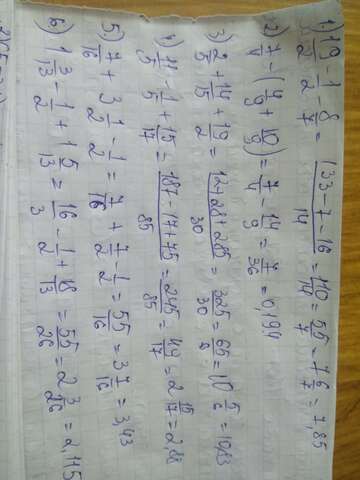 1) 19/2 - 1/2 - 8/7 = (133-7-16)/14 = 110/14 = 55/7 = 7 6/7 = 7,85
2) 7/4 - (4/9 + 10/9) = 7/4 - 14/9 = 7/36 = 0,194
3) 2/5 + 14/15 + 19/2 = (12+28+285)/30 = 325/30 = 65/6 = 10 5/6 = 10,83
4) 11/5 - 1/5 + 15/17 = (187-17+75)/85 = 245/85 = 49/17 = 2 15/17 = 2,88
5) 7/16 + 3 1/2 - 1/2 = 7/16 + 7/2 - 1/2 = 55/16 = 3 7/16 = 3,43
6) 1 3/13 - 1/2 + 1 5/13 = 16/13 - 1/2 + 18/13 = 55/26 = 2 3/26 = 2,115